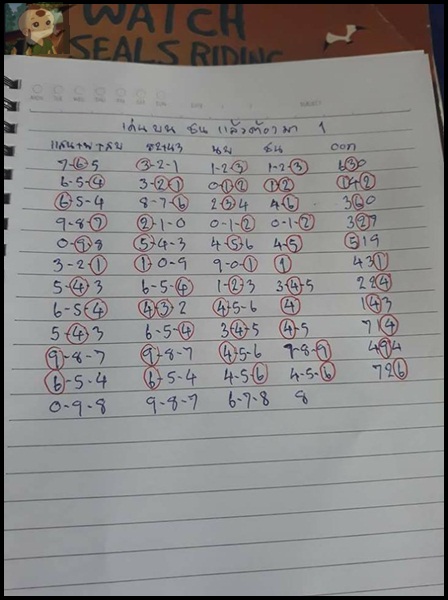 WATCH
SEALS RIDING
เด่น บน ชน แล้วต้องมา 1
7-6-5 3-2-1 1-2-3 1-2-3 630
6-5-4 3-2-1 0-1-2 1 2 142
6-5-4 8-7-6 2 3 4 4-6 360
9-8-7 2-1-0 0-1-2 0-1-2 327
0-9-8 5-4-3 4-5-6 4-5 519
3-2-1 1-0-9 9-0-1 1 431
5-4-3 6-5-4 1-2-3 3-4-5 224
6-5-4 4-3-2 4-5-6 4 143
5-4-3 6-5-4 3-4-5 4-5 714
9-8-7 9-8-7 4-5-6 9-8-7 494
6-5-4 6-5-4 4-5-6 4-5-6 726
0-9-8 9-8-7 6-7-8 8